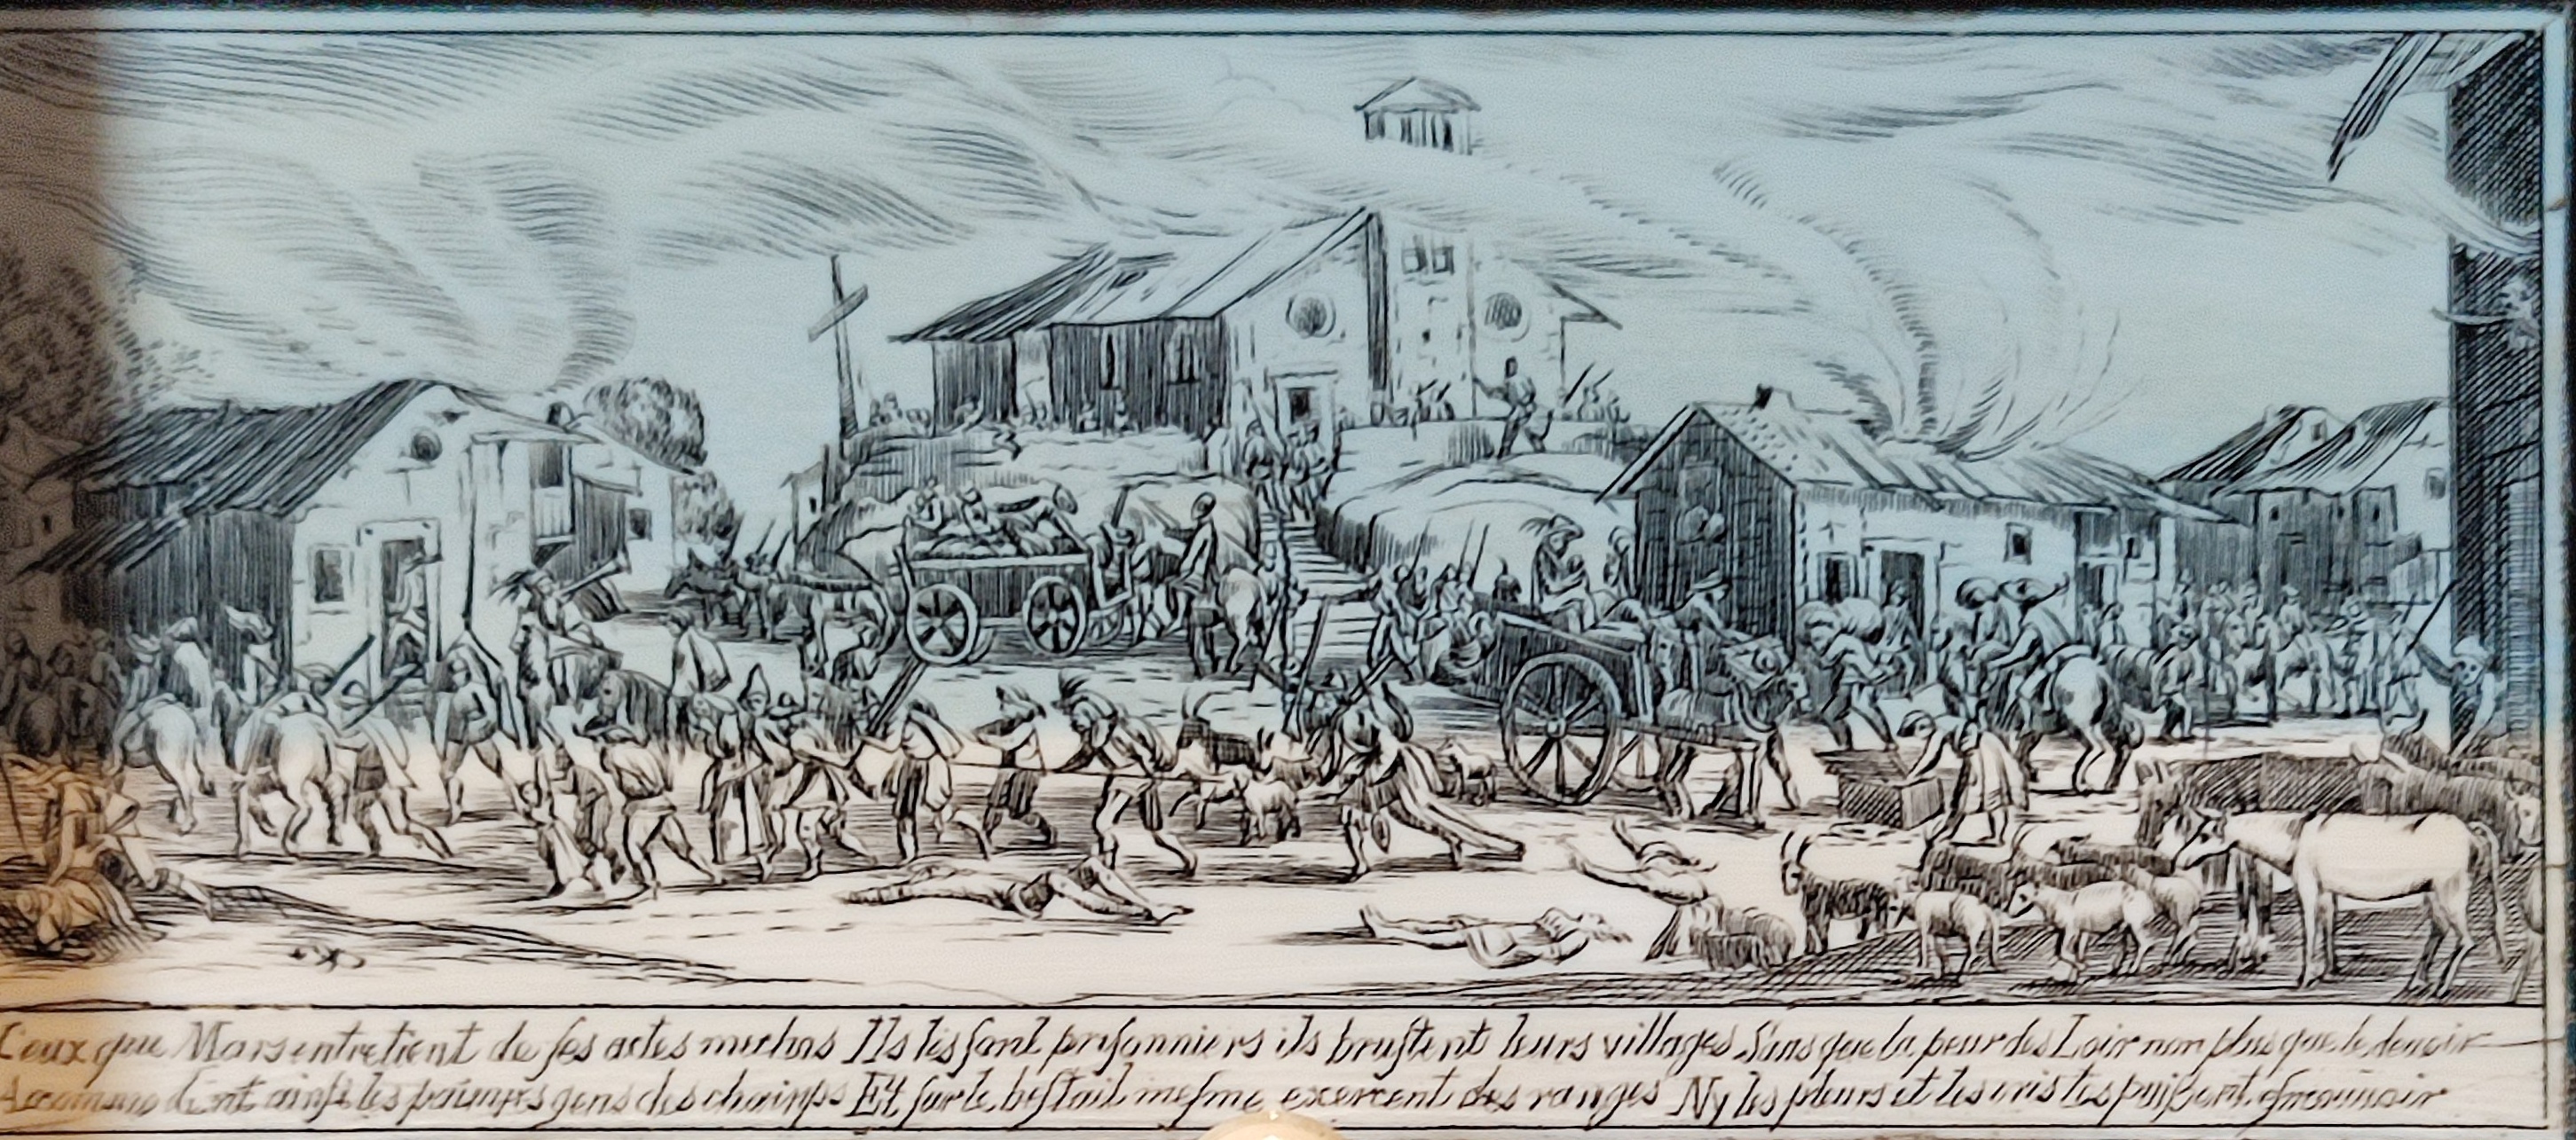 Ceux que Mars entretient de ses actes meschas Ils les font prisonniers ils bruslent leurs villages Sans que la peur des Loix non plus que le devoir
Accommodent ainsi les pauvres gens des champs Et sur le bestail mesme exercent des ravages Ny les pleurs et les cris les puissent esmouvoir